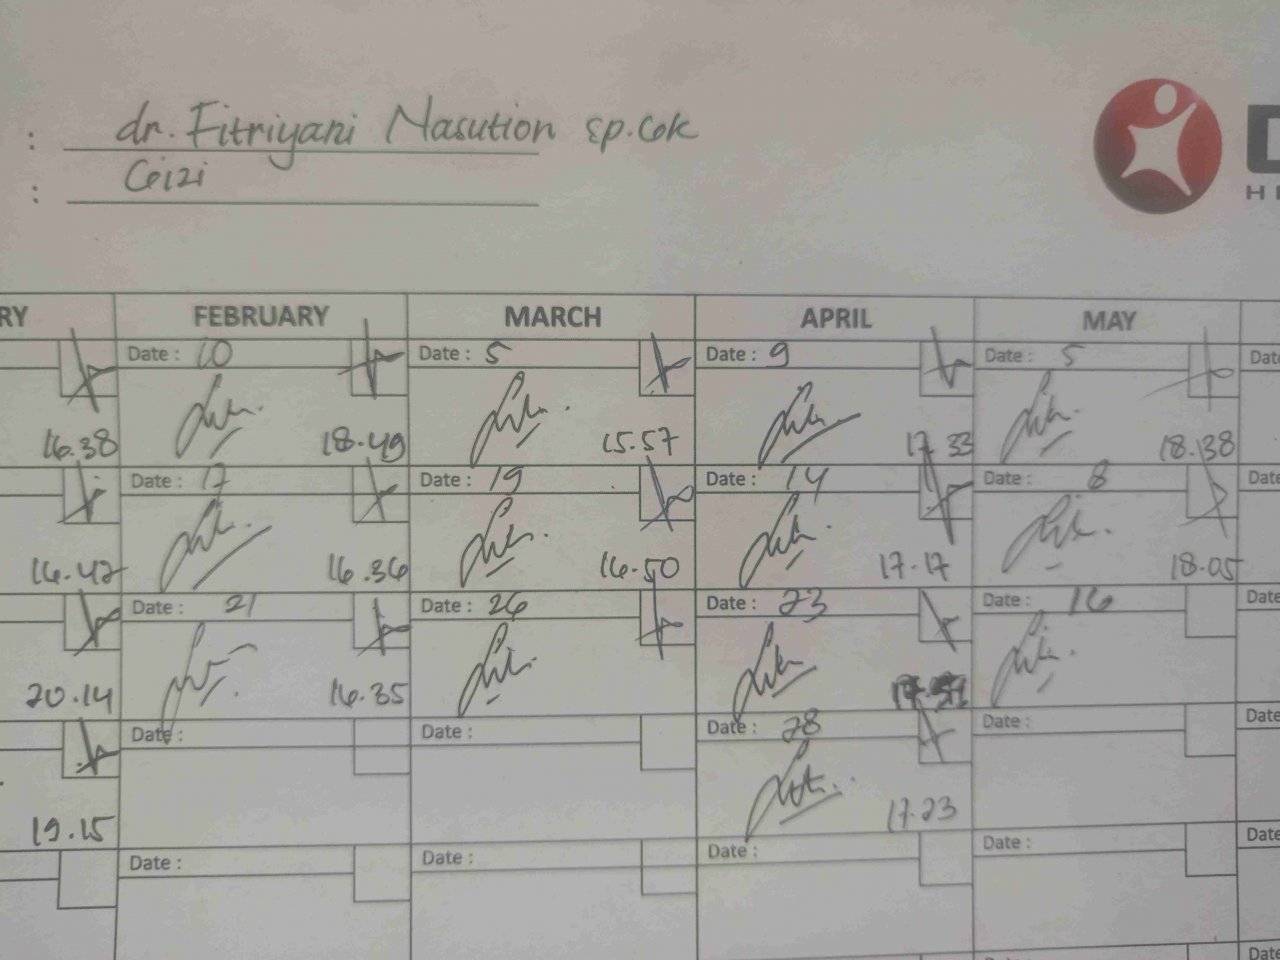 : dr. Fitriyani Nasution sp.GK
: Gizi
D
H
RY FEBRUARY MARCH APRIL MAY
Date : 10 Date : 5 Date : 9 Date : 5 Date
16.38 18.49 15.57 17.33 18.38
Date : 17 Date : 19 Date : 14 Date : 8 Date
16.47 16.36 16.50 17.17 18.05
Date : 21 Date : 26 Date : 23 Date : 16 Date
20.14 16.35
Date : Date : Date : 28 Date : Date
19.15 17.23
Date : Date : Date : Date : Date
Date